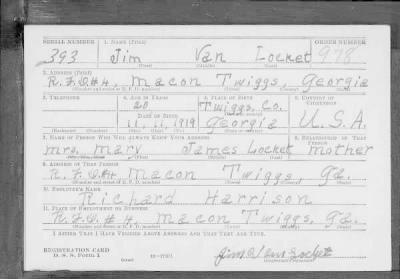 SERIAL NUMBER 1. NAME (Print) ORDER NUMBER
393 Jim Van Locket 978
(First) (Middle) (Last)
2. ADDRESS (Print)
R.F.D.#4, Macon Twiggs, Georgia
(Number and street or R. F. D. number) (Town) (County) (State)
3. TELEPHONE 4. AGE IN YEARS 5. PLACE OF BIRTH 6. COUNTRY OF CITIZENSHIP
20 Twiggs, Co. U.S.A.
DATE OF BIRTH
11, 11, 1919 Georgia
(Mo.) (Day) (Yr.) (State or country)
7. NAME OF PERSON WHO WILL ALWAYS KNOW YOUR ADDRESS 8. RELATIONSHIP OF THAT PERSON
Mrs. Mary James Locket Mother
(Mr., Mrs., Miss) (First) (Middle) (Last)
9. ADDRESS OF THAT PERSON
R.F.D.#4 Macon Twiggs, Ga.
(Number and street or R. F. D. number) (Town) (County) (State)
10. EMPLOYER'S NAME
Richard Harrison
11. PLACE OF EMPLOYMENT OR BUSINESS
R.F.D.#4, Macon Twiggs, Ga.
(Number and street or R. F. D. number) (Town) (County) (State)
I AFFIRM THAT I HAVE VERIFIED ABOVE ANSWERS AND THAT THEY ARE TRUE.
REGISTRATION CARD
D. S. S. Form 1 (over) Jim Van Locket
(Registrant's signature)